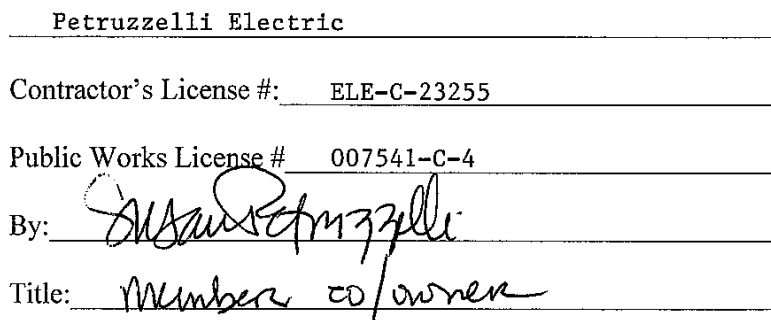 Petruzzelli Electric
Contractor's License #: ELE-C-23255
Public Works License # 007541-C-4
By: Susan Petruzzelli
Title: Member co/owner